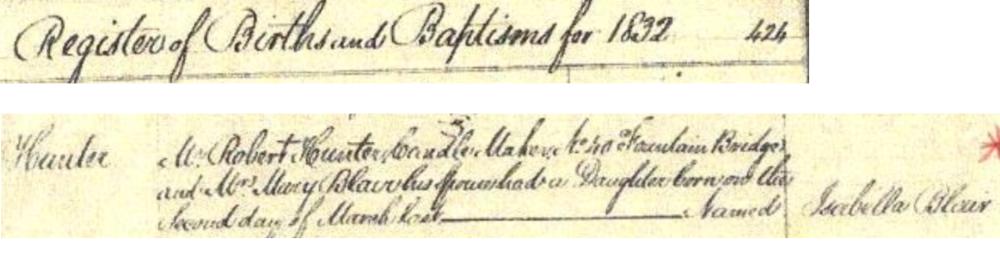 Register of Births and Baptisms for 1832 424
Hunter Mr. Robert Hunter Candle Maker No. 40 Fountain Bridge
and Mrs Mary Blair his Spouse had a Daughter born on the
Second day of March last Named Isabella Blair